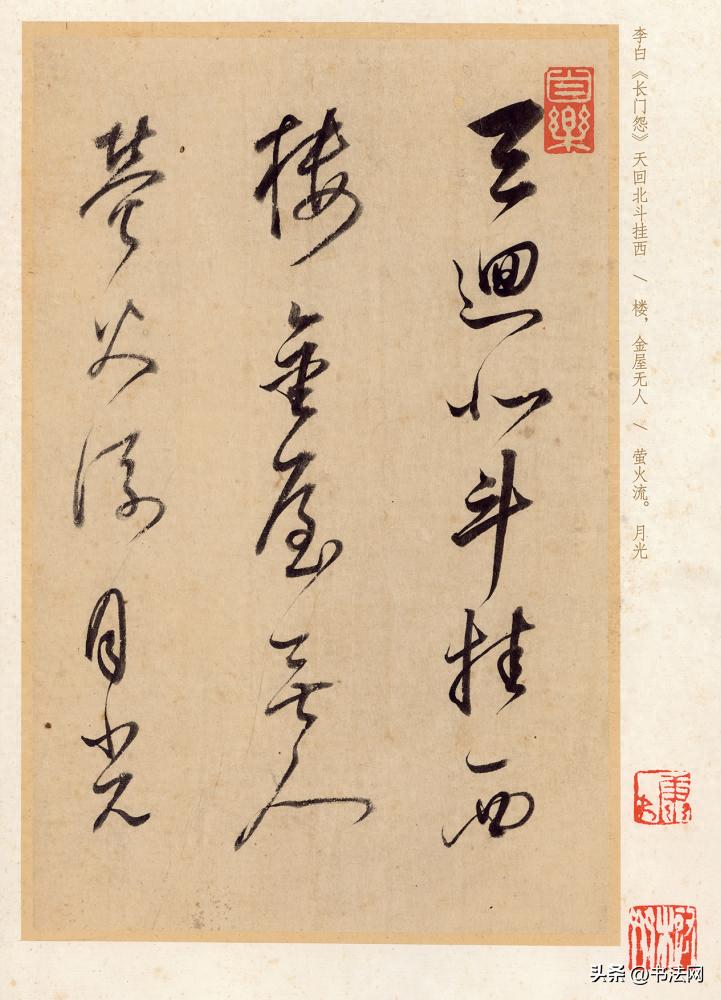 李白《长门怨》天回北斗挂西 \ 楼，金屋无人 \ 萤火流。 月光
天迴北斗挂西
楼金屋无人
萤火流月光
頭条 @书法网